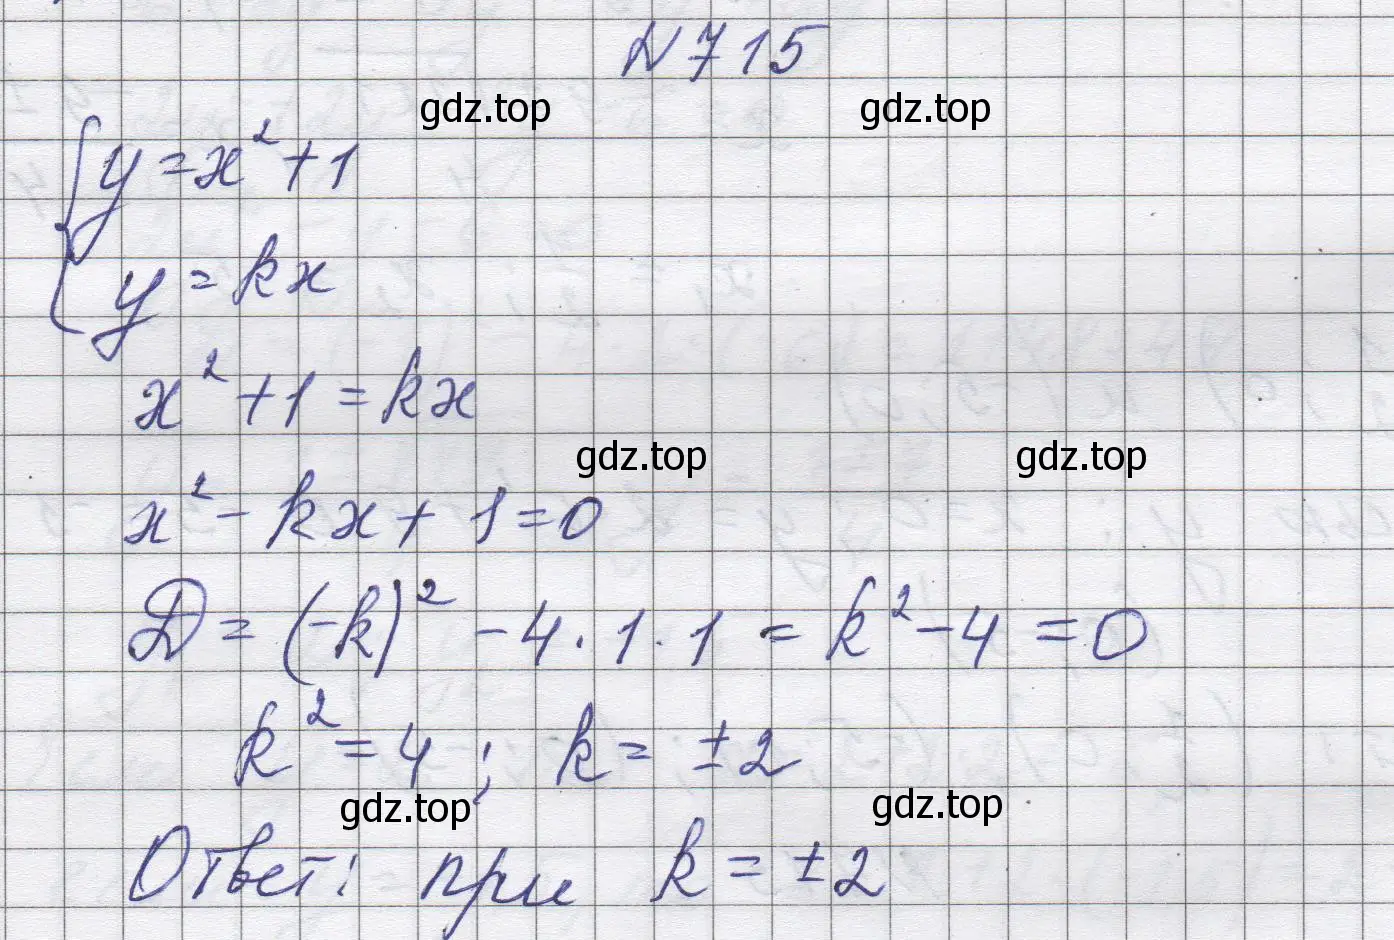 № 715
gdz.top gdz.top
{ y = x² + 1
y = kx
x² + 1 = kx
gdz.top gdz.top
x² - kx + 1 = 0
D = (-k)² - 4 · 1 · 1 = k² - 4 = 0
k² = 4 ; k = ±2
gdz.top gdz.top
Ответ: при k = ±2